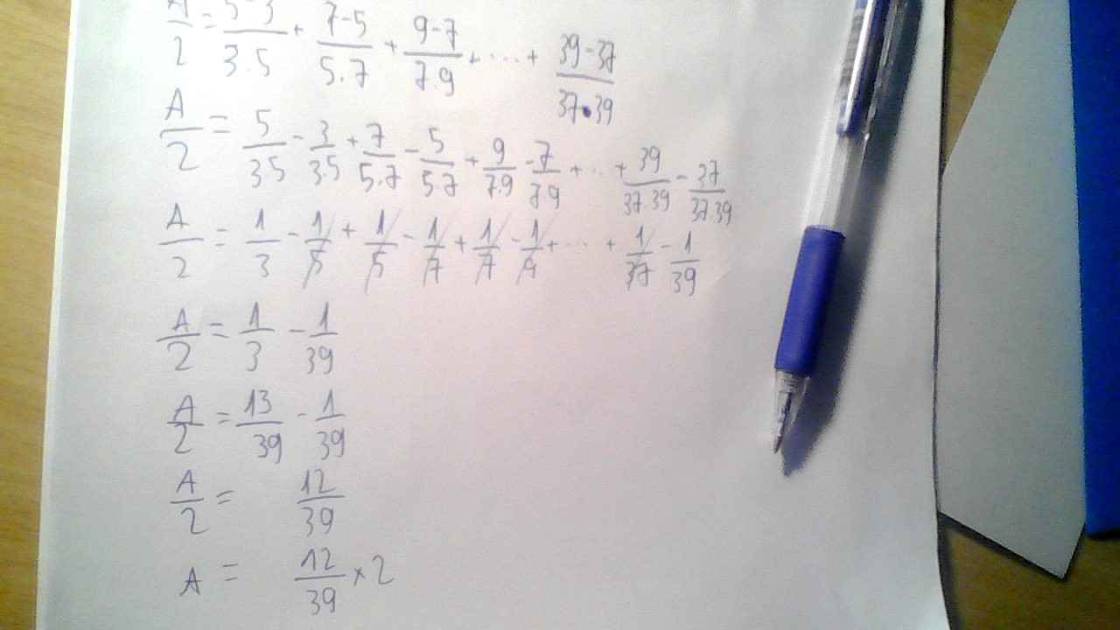 A/2 = 5-3/3.5 + 7-5/5.7 + 9-7/7.9 + ... + 39-37/37.39
A/2 = 5/3.5 - 3/3.5 + 7/5.7 - 5/5.7 + 9/7.9 - 7/7.9 + ... + 39/37.39 - 37/37.39
A/2 = 1/3 - 1/5 + 1/5 - 1/7 + 1/7 - 1/9 + ... + 1/37 - 1/39
A/2 = 1/3 - 1/39
A/2 = 13/39 - 1/39
A/2 = 12/39
A = 12/39 × 2